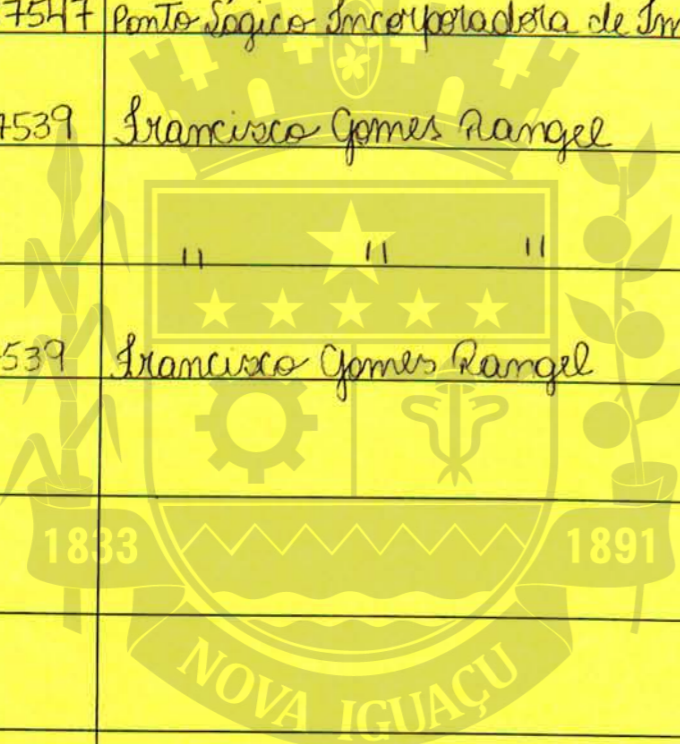 7547 Ponto Lógico Incorporadora de Im
7539 Francisco Gomes Rangel
" " "
539 Francisco Gomes Rangel
1833 1891
NOVA IGUAÇU